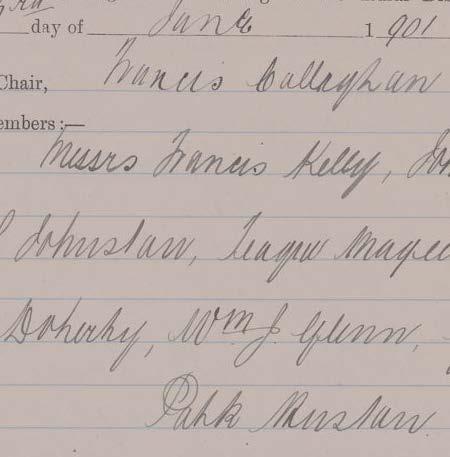 3rd
day of June 1901
Chair, Francis Callaghan
embers:—
Messrs Francis Kelly, Joh
Johnston, Teague Magee
Doherty, Wm J. Glenn,
Patk